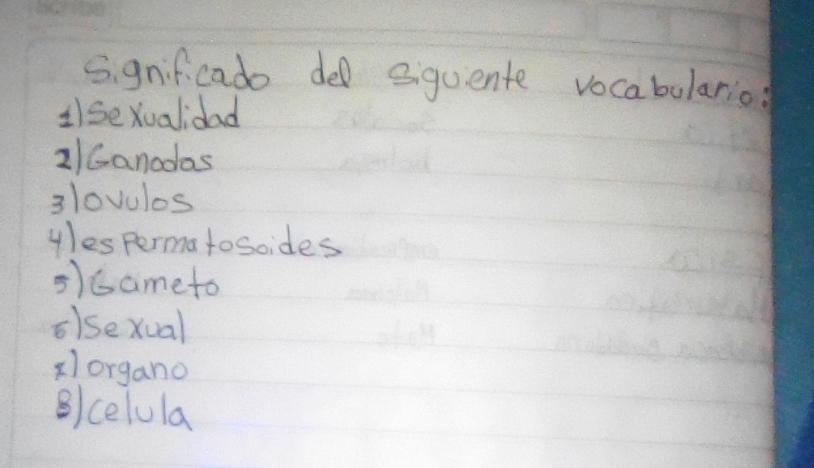 Scribe
Significado del siguiente vocabulario:
1) Sexualidad
2) Ganodas
3) ovulos
4) espermatosoides
5) Gameto
6) Sexual
7) organo
8) celula